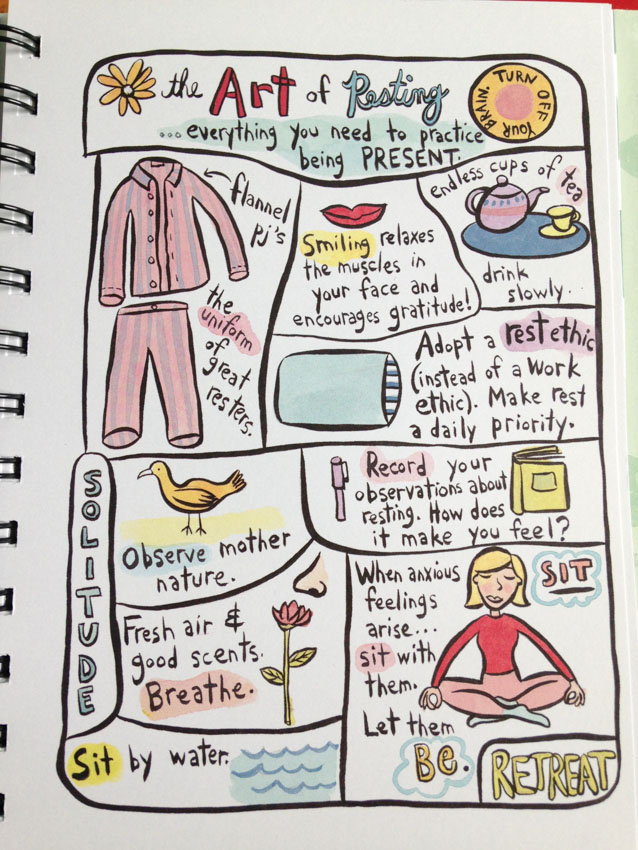 the Art of Resting
TURN OFF YOUR BRAIN.
...everything you need to practice
being PRESENT.
flannel
pj's
the
uniform
of
great
resters.
Smiling relaxes
the muscles in
your face and
encourages gratitude!
endless cups of tea
drink
slowly.
Adopt a rest ethic
(instead of a work
ethic). Make rest
a daily priority.
SOLITUDE
Observe mother
nature.
Record your
observations about
resting. How does
it make you feel?
Fresh air &
good scents.
Breathe.
When anxious
feelings
arise...
sit with
them.
Let them
Be.
SIT
Sit by water.
RETREAT